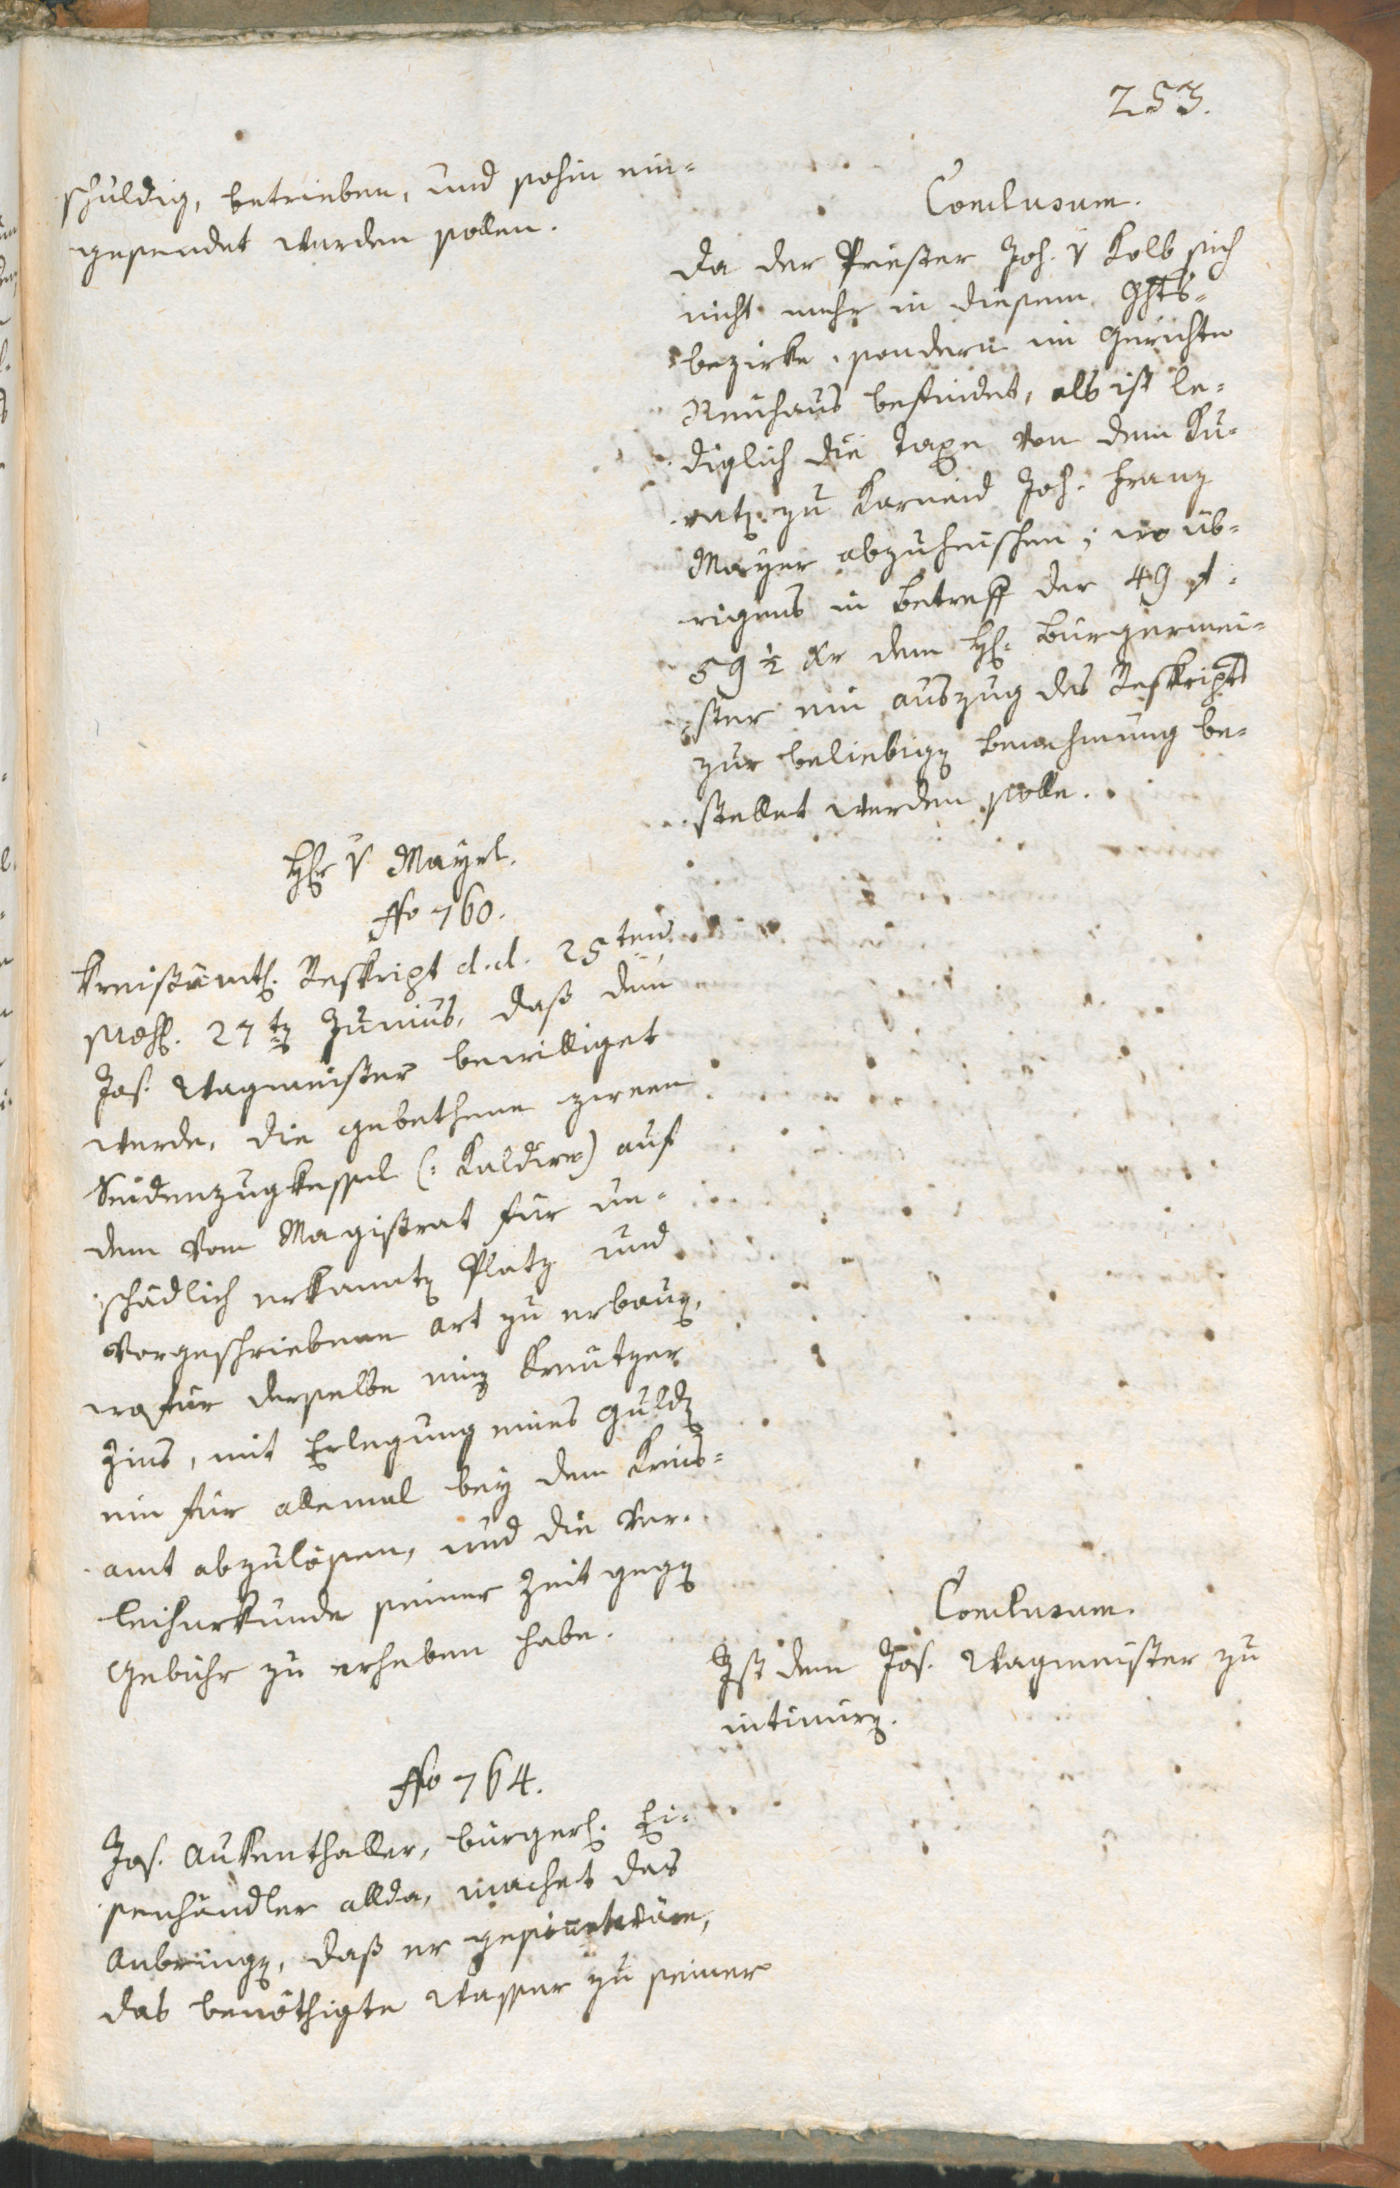 253.
schuldig, betrieben, und sohin ein-
gesendet werden sollen.
Conclusum.
Da der Priester Joh. v Kolb sich
nicht mehr in diesem Ghts-
bezirke, sondern im Gerichte
Neuhaus befindet, als ist le-
diglich die Taxe von dem Ku-
raten zu Karneid Joh. Franz
Mayer abzuheischen; wo üb-
rigens in Betreff der 49 f.
59 ½ xr dem H. Bürgermei-
ster ein Auszug des Reskripts
zur beliebigen Benehmung be-
stellet werden solle.
Hr v Mayrl.
No 760.
Kreisämtl. Reskript d.d. 25ten
27ten Junius, daß dem
Jos. Wagmeister bewilliget
werde, die gebethene zween
Seidenzugkessel (: Kaldire) auf
dem vom Magistrat für un-
schädlich erkannten Platz und
vorgeschriebene Art zu erbauen,
wofür derselbe einen Kreutzer
Zins, mit Erlegung eines Gulden
ein für allemal bey dem Kreis-
amt abzulösen, und die Ver-
leihurkunde seiner Zeit gegen
Gebühr zu erheben habe.
Conclusum.
Ist dem Jos. Wagmeister zu
intimiren.
No 764.
Jos. Aukenthaller, bürgerl. Ei-
senhändler allda, machet das
Anbringen, daß er gesinnet wäre,
das benöthigte Wasser zu seiner